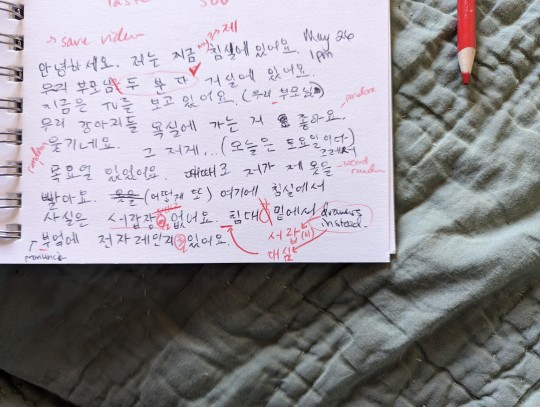 taste 500
→ save video 제 May 26
안녕하세요. 저는 지금 침실에 있어요. 1pm
우리 부모님 두 분 다 거실에 있어요.
지금은 TV를 보고 있어요. (우리 부모님)
우리 강아지들 욕실에 가는 거 좋아요. random
random 웃기네요. 그 저게... (오늘은 토요일이다) 그래서
목요일 있었어요. 때때로 저가 제 옷을 random
빨아요. (어떻게 또) 여기에 침실에서
사실은 서랍장 없너요. 침대 밑에서 drawers instead.
부엌에 전자레인지 있어요. 서랍
pronunciation 대신